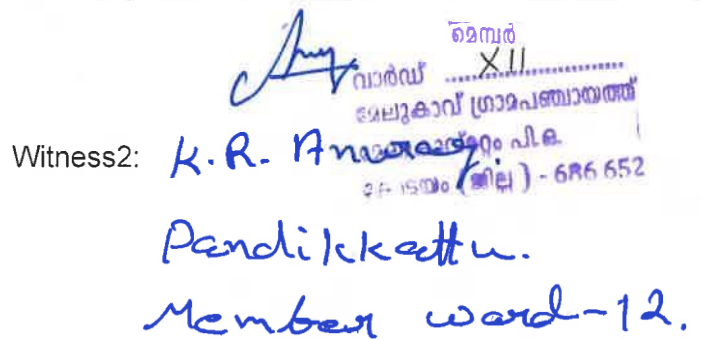 മെമ്പർ
വാർഡ് ......XII......
മേലുകാവ് ഗ്രാമപഞ്ചായത്ത്
പി.ഒ.
(ജില്ല) - 686 652
Witness2: K.R. Anurag
Pandikkattu.
Member ward-12.